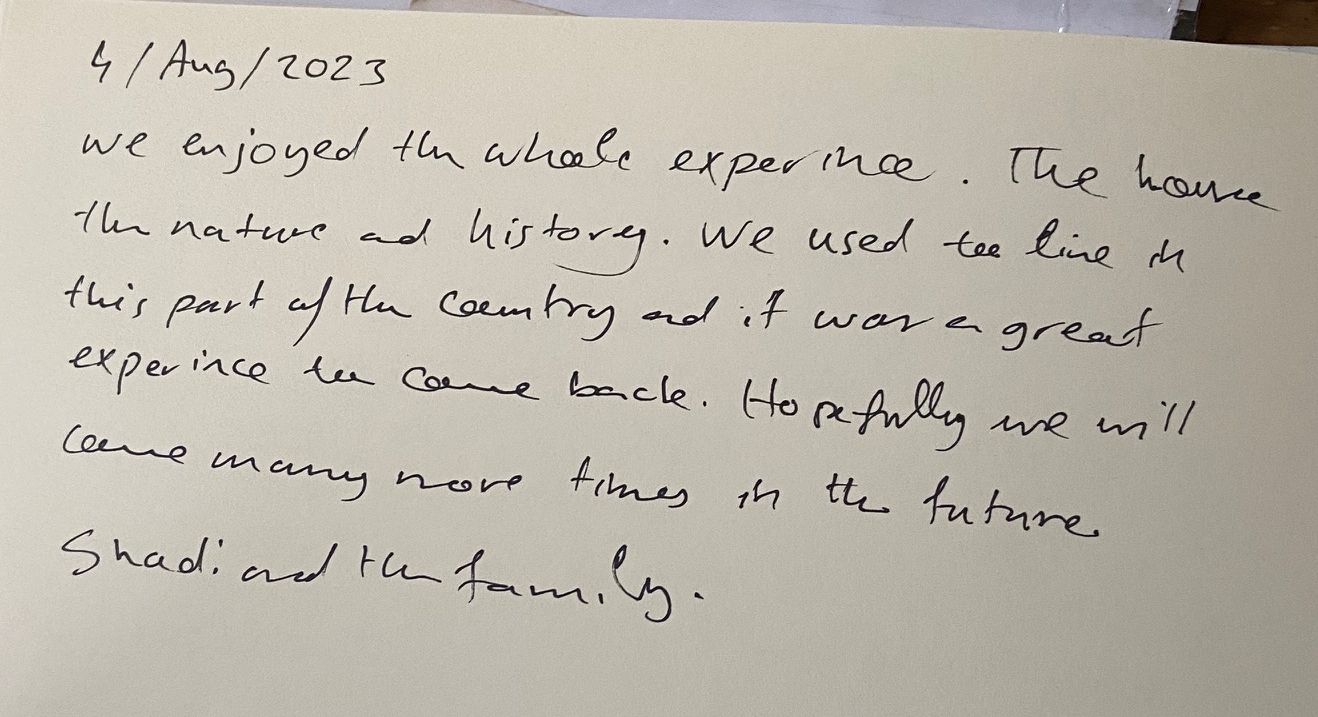 4/Aug/2023
we enjoyed the whole experince. The house
the nature ad history. We used to live in
this part of the country and it was a great
experince to come back. Hopefully we will
come many more times in the future.
Shadi and the family.